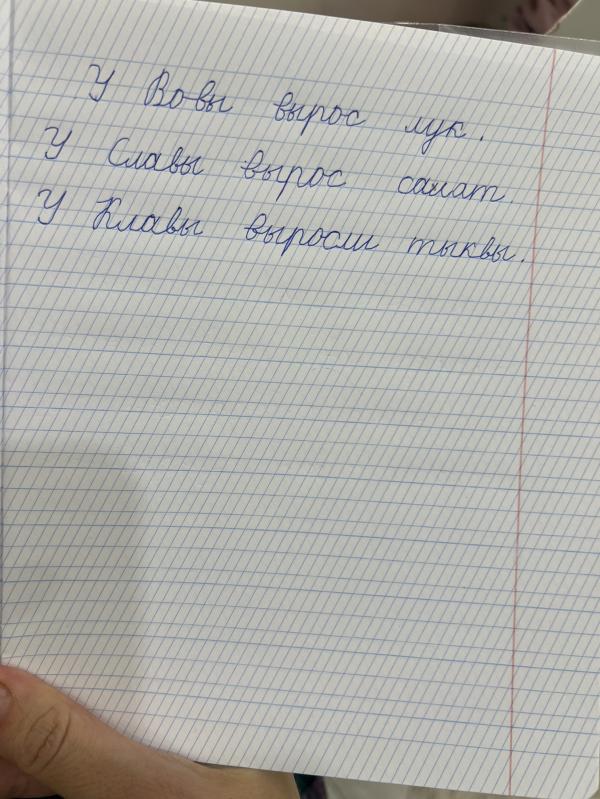 У Вовы вырос лук.
У Славы вырос салат.
У Клавы выросли тыквы.